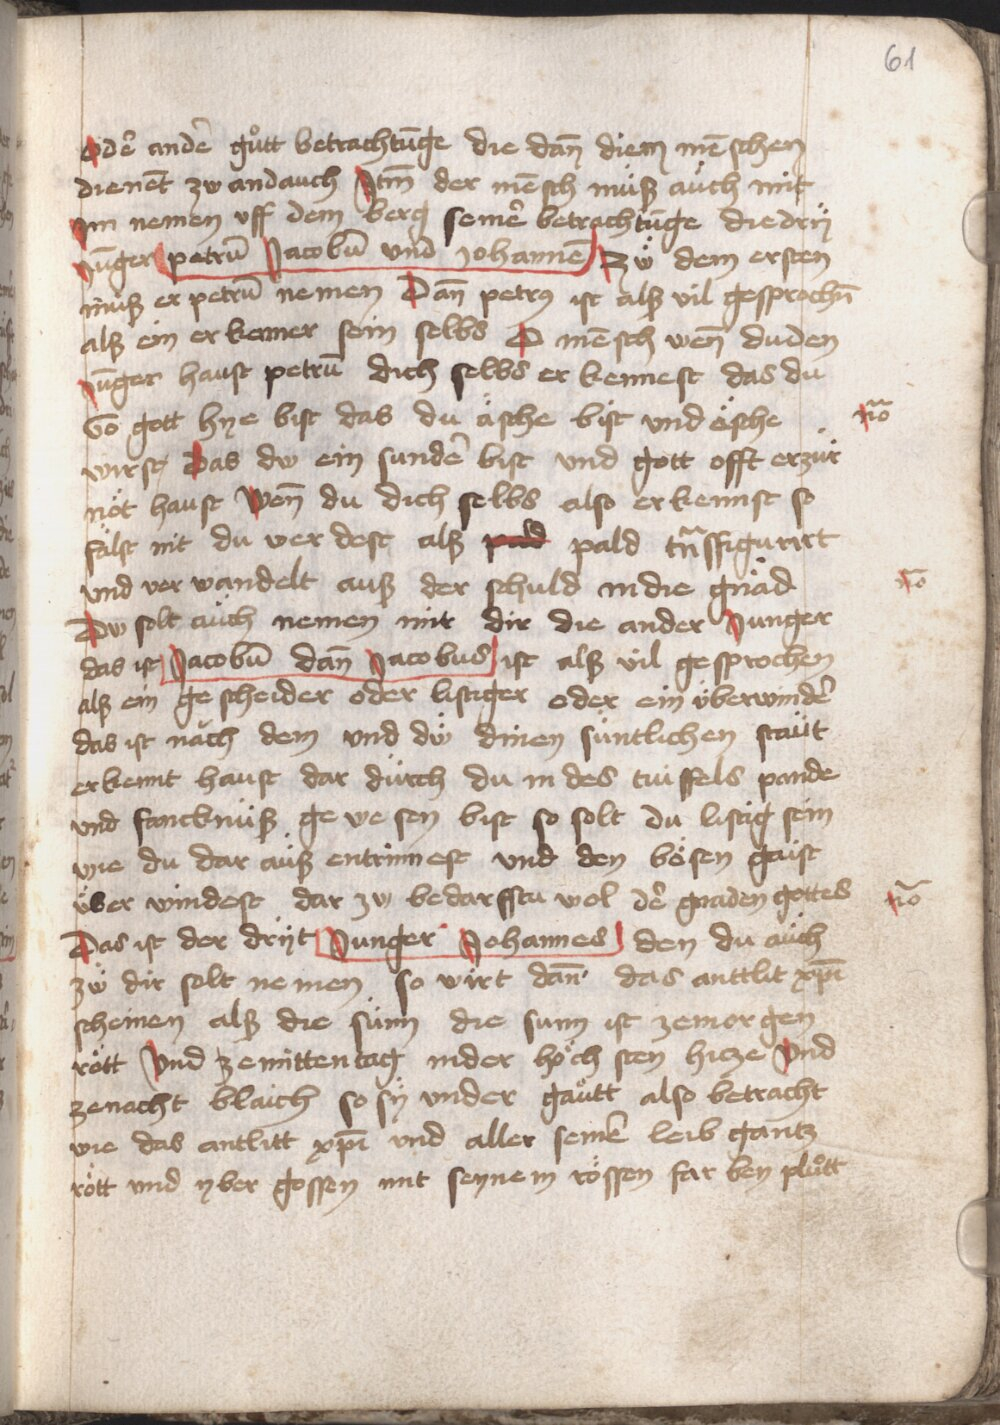 61
odẽ andẽ gůtt betrachtu̅ge die dan̅ diem me̅schen
diene̅t zw andauch Jtm̅ der me̅sch müß aüch mit
Jm nemen vff dem berg seinẽ betrachtu̅ge die drÿ
Ju̅ger petru̅ Jacobu̅ vnd Johanne̅ Zẅ dem ersten
müß er petru̅ nemen Dan̅ petrꝰ ist alß vil gesproche̅
alß ein erkenner sein selbs O me̅sch wen̅ du den
Ju̅ger haust petru̅ dich selbs erkennest das du
vo̅ gott hye bist das du äsche bist vnd äsche
wirst Das dw ein sundẽ bist vnd gott offt erzür
nöt haust Wen̅ du dich selbs also erkennst so
fälst nit du verdest alß pald tr̅ssfigurirt
vnd verwandelt auß der schuld in die gnäd
Dw solt aüch nemen mit dir die ander Junger
das ist Jacobu̅ dan̅ Jacobus ist alß vil gesprochen
alß ein gescheider oder listiger oder ein überwindẽ
das ist näch dem vnd dẅ dinen süntlichen staüt
erkennt haust dar dürch du in des tuiffels pande
vnd fancknüß gewesen bist so solt du listig sein
wie du dar aüß entrinnest vnd den bösen gaist
überwindest dar zw bedarfftu wol dẽ gnaden gottes
Das ist der drÿt Junger Johannes den du aüch
zẅ dir solt nemen so wirt dan̅ das anttlit xp̅i
scheinen alß die sünn die sunn ist zemorgen
rött Vnd zemittentag in der höchsten hicze Vnd
zenacht blaich so sÿ vnder gaůtt also betracht
wie das antlitt xp̅i vnd aller seinẽ leib gantz
rött vnd yber gossen mit seynem rössen farben plůtt
nõ
nõ
nõ